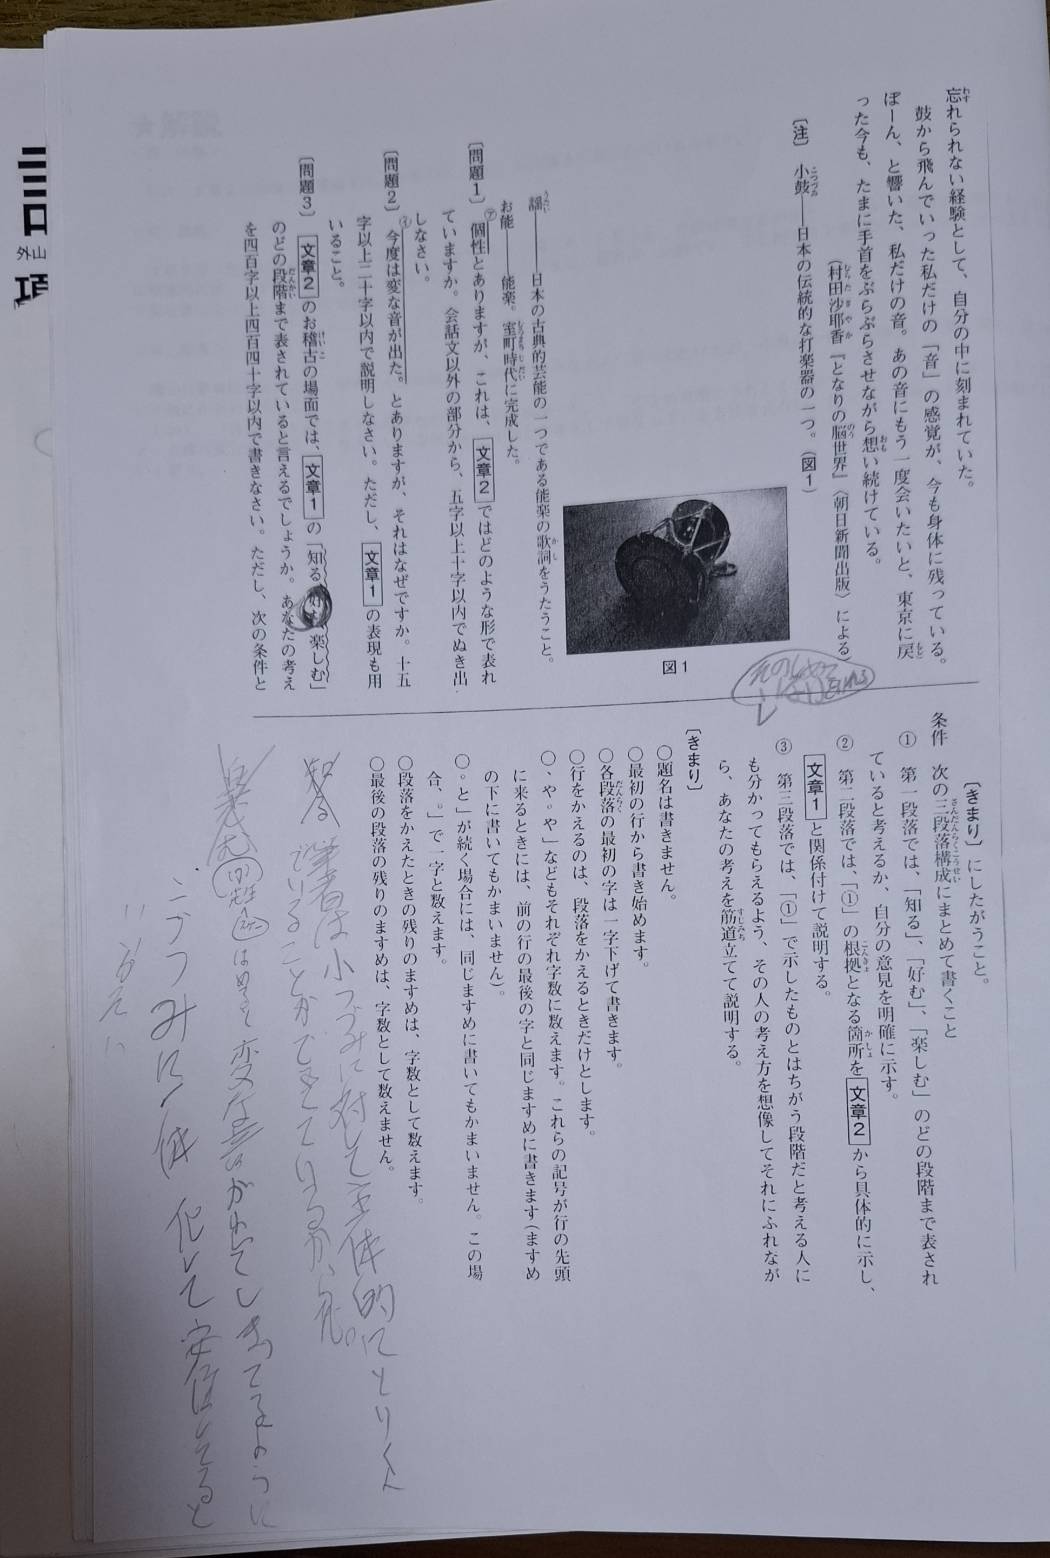 忘れられない経験として、自分の中に刻まれていた。
鼓から飛んでいった私だけの「音」の感覚が、今も身体に残っている。
ぽーん、と響いた、私だけの音。あの音にもう一度会いたいと、東京に戻
った今も、たまに手首をぶらぶらさせながら想い続けている。
(村田沙耶香『となりの脳世界』〈朝日新聞出版〉による)
〔注〕 小鼓――日本の伝統的な打楽器の一つ。(図1)
謡――――日本の古典的芸能の一つである能楽の歌詞をうたうこと。
お能―――能楽。室町時代に完成した。
図1
〔問題1〕 ㋐個性とありますが、これは、文章2ではどのような形で表れ
ていますか。会話文以外の部分から、五字以上十字以内でぬき出
しなさい。
〔問題2〕 ㋑今度は変な音が出た。とありますが、それはなぜですか。十五
字以上二十字以内で説明しなさい。ただし、文章1の表現も用
いること。
〔問題3〕 文章2のお稽古の場面では、文章1の「知る 好む 楽しむ」
のどの段階まで表されていると言えるでしょうか。あなたの考え
を四百字以上四百四十字以内で書きなさい。ただし、次の条件と
〔きまり〕にしたがうこと。
条件 次の三段落構成にまとめて書くこと
① 第一段落では、「知る」、「好む」、「楽しむ」のどの段階まで表され
ていると考えるか、自分の意見を明確に示す。
② 第二段落では、「①」の根拠となる箇所を文章2から具体的に示し、
文章1と関係付けて説明する。
③ 第三段落では、「①」で示したものとはちがう段階だと考える人に
も分かってもらえるよう、その人の考え方を想像してそれにふれなが
ら、あなたの考えを筋道立てて説明する。
〔きまり〕
○題名は書きません。
○最初の行から書き始めます。
○各段落の最初の字は一字下げて書きます。
○行をかえるのは、段落をかえるときだけとします。
○、や。や」などもそれぞれ字数に数えます。これらの記号が行の先頭
に来るときには、前の行の最後の字と同じますめに書きます(ますめ
の下に書いてもかまいません)。
○。と」が続く場合には、同じますめに書いてもかまいません。この場
合、。」で一字と数えます。
○段落をかえたときの残りのますめは、字数として数えます。
○最後の段落の残りのますめは、字数として数えません。
知る 筆者は小づみに対して主体的にとりくん
でいることができているから。
楽しむ 個性 はめると変な音がかわってしまってるように
こづつみに一体化して安住してると
いえない
三口
外山
項